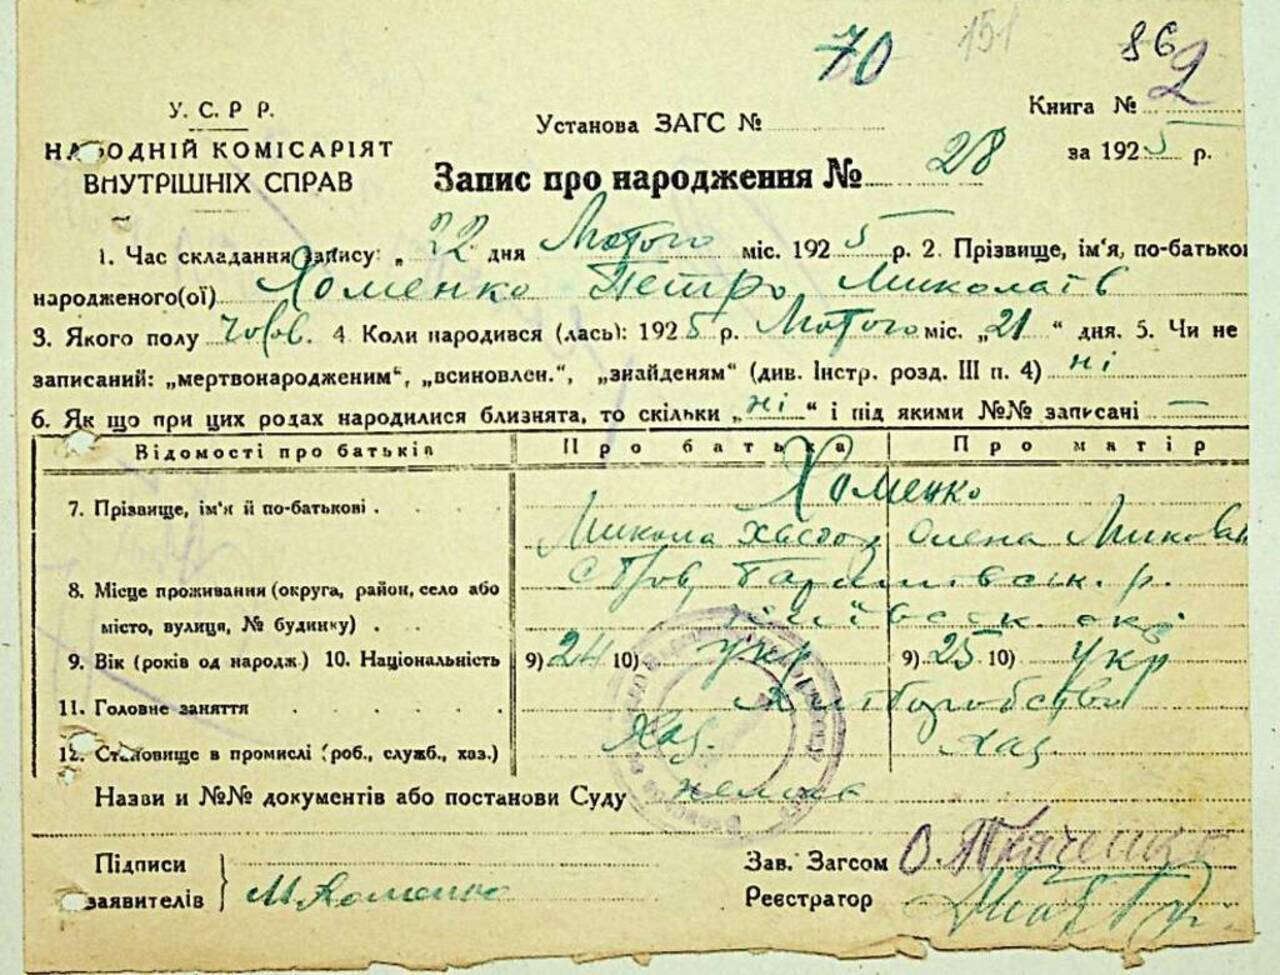 70 151 86
У. С. Р Р.
НАРОДНІЙ КОМІСАРІЯТ
ВНУТРІШНІХ СПРАВ
Установа ЗАГС №
Книга № 2
за 1925 р.
Запис про народження № 28
1. Час складання запису: „22 дня Лютого міс. 1925 р. 2. Прізвище, ім'я, по-батькові
народженого(ої) Хоменко Петро Миколаїв
3. Якого полу чолов. 4. Коли народився (лась): 1925 р. Лютого міс. „21“ дня. 5. Чи не
записаний: „мертвонародженим“, „всиновлен.“, „знайденям“ (див. Інстр. розд. III п. 4) ні
6. Як що при цих родах народилися близнята, то скільки „ні“ і під якими №№ записані —
Відомості про батьків Про батька Про матір
7. Прізвище, ім'я й по-батькові . Хоменко
Микола Олена
8. Місце проживання (округа, район, село або
місто, вулиця, № будинку) .
9. Вік (років од народж) 10. Національність 9) 24 10) укр 9) 25 10) укр
11. Головне заняття Хліборобство
12. Становище в промислі (роб., служб., хаз.) Хаз. хаз.
Назви и №№ документів або постанови Суду немає
Підписи
заявителів М. Хоменко
Зав. Загсом О. Ткаченко
Реєстратор